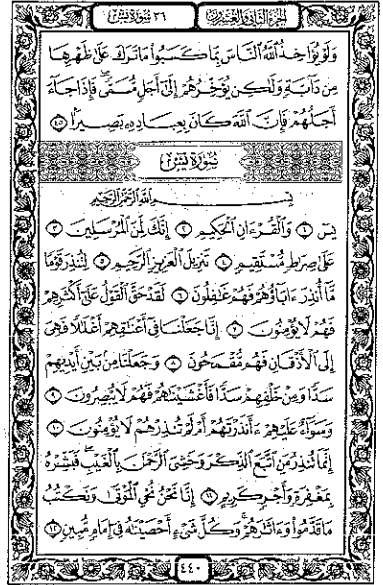 ٣٦ سورة يس
الجزء الثاني والعشرون
وَلَوْ يُؤَاخِذُ ٱللَّهُ ٱلنَّاسَ بِمَا كَسَبُوا۟ مَا تَرَكَ عَلَىٰ ظَهْرِهَا
مِن دَآبَّةٍ وَلَٰكِن يُؤَخِّرُهُمْ إِلَىٰٓ أَجَلٍ مُّسَمًّى ۖ فَإِذَا جَآءَ
أَجَلُهُمْ فَإِنَّ ٱللَّهَ كَانَ بِعِبَادِهِۦ بَصِيرًۢا ٤٥
سورة يس
بِسْمِ ٱللَّهِ ٱلرَّحْمَٰنِ ٱلرَّحِيمِ
يسٓ ١ وَٱلْقُرْءَانِ ٱلْحَكِيمِ ٢ إِنَّكَ لَمِنَ ٱلْمُرْسَلِينَ ٣
عَلَىٰ صِرَٰطٍ مُّسْتَقِيمٍ ٤ تَنزِيلَ ٱلْعَزِيزِ ٱلرَّحِيمِ ٥ لِتُنذِرَ قَوْمًا
مَّآ أُنذِرَ ءَابَآؤُهُمْ فَهُمْ غَٰفِلُونَ ٦ لَقَدْ حَقَّ ٱلْقَوْلُ عَلَىٰٓ أَكْثَرِهِمْ
فَهُمْ لَا يُؤْمِنُونَ ٧ إِنَّا جَعَلْنَا فِىٓ أَعْنَٰقِهِمْ أَغْلَٰلًا فَهِىَ
إِلَى ٱلْأَذْقَانِ فَهُم مُّقْمَحُونَ ٨ وَجَعَلْنَا مِنۢ بَيْنِ أَيْدِيهِمْ
سَدًّا وَمِنْ خَلْفِهِمْ سَدًّا فَأَغْشَيْنَٰهُمْ فَهُمْ لَا يُبْصِرُونَ ٩
وَسَوَآءٌ عَلَيْهِمْ ءَأَنذَرْتَهُمْ أَمْ لَمْ تُنذِرْهُمْ لَا يُؤْمِنُونَ ١٠
إِنَّمَا تُنذِرُ مَنِ ٱتَّبَعَ ٱلذِّكْرَ وَخَشِىَ ٱلرَّحْمَٰنَ بِٱلْغَيْبِ ۖ فَبَشِّرْهُ
بِمَغْفِرَةٍ وَأَجْرٍ كَرِيمٍ ١١ إِنَّا نَحْنُ نُحْىِ ٱلْمَوْتَىٰ وَنَكْتُبُ
مَا قَدَّمُوا۟ وَءَاثَٰرَهُمْ ۚ وَكُلَّ شَىْءٍ أَحْصَيْنَٰهُ فِىٓ إِمَامٍ مُّبِينٍ ١٢
٤٤٠